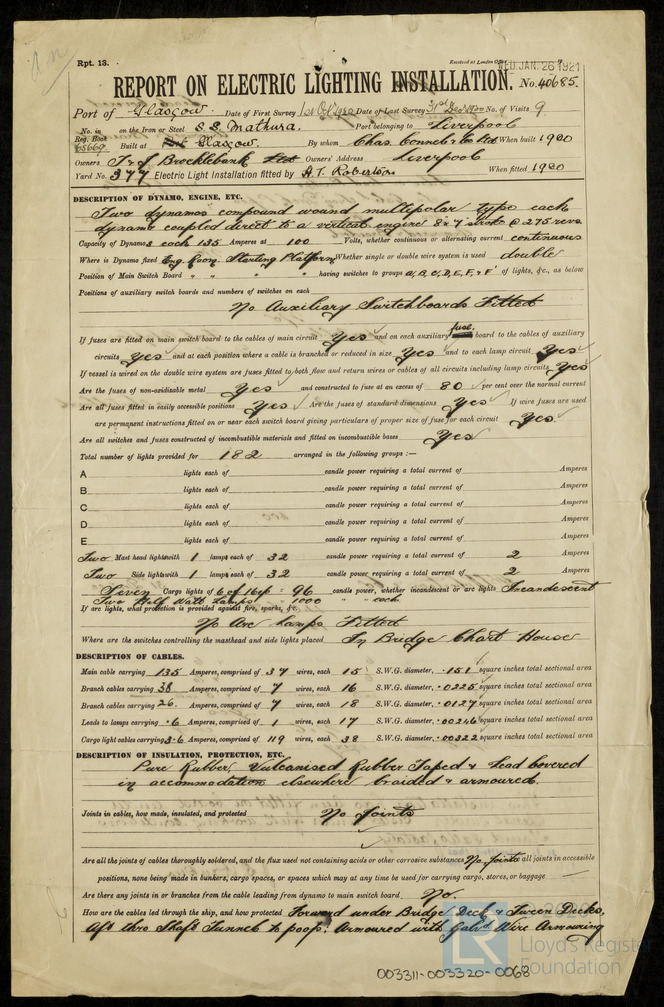 Rpt. 13.
Received at London Office WED. JAN. 26 1921
REPORT ON ELECTRIC LIGHTING INSTALLATION. No. 40685.
Port of Glasgow Date of First Survey 1st Oct 1920 Date of Last Survey 31st Dec 1920 No. of Visits 9
No. in Reg. Book 65669 on the Iron or Steel S.S. Mathura. Port belonging to Liverpool
Built at Glasgow By whom Chas. Connell & Co Ltd When built 1920
Owners T. & J Brocklebank Ltd Owners' Address Liverpool
Yard No. 377 Electric Light Installation fitted by A.T. Robertson When fitted 1920
DESCRIPTION OF DYNAMO, ENGINE, ETC.
Two dynamos compound wound multipolar type each
dynamo coupled direct to a vertical engine 8 x 7 stroke @ 275 revs.
Capacity of Dynamos each 135 Amperes at 100 Volts, whether continuous or alternating current continuous
Where is Dynamo fixed Eng. Room. Starting Platform Whether single or double wire system is used double
Position of Main Switch Board " " " " having switches to groups A, B, C, D, E, F, & F' of lights, &c., as below
Positions of auxiliary switch boards and numbers of switches on each
No Auxiliary Switchboards Fitted
If fuses are fitted on main switch board to the cables of main circuit Yes and on each auxiliary fuse board to the cables of auxiliary
circuits Yes and at each position where a cable is branched or reduced in size Yes and to each lamp circuit Yes
If vessel is wired on the double wire system are fuses fitted to both flow and return wires or cables of all circuits including lamp circuits Yes
Are the fuses of non-oxidizable metal Yes and constructed to fuse at an excess of 80 per cent over the normal current
Are all fuses fitted in easily accessible positions Yes Are the fuses of standard dimensions Yes If wire fuses are used
are permanent instructions fitted on or near each switch board giving particulars of proper size of fuse for each circuit Yes.
Are all switches and fuses constructed of incombustible materials and fitted on incombustible bases Yes
Total number of lights provided for 182 arranged in the following groups :—
A lights each of candle power requiring a total current of Amperes
B lights each of candle power requiring a total current of Amperes
C lights each of candle power requiring a total current of Amperes
D lights each of candle power requiring a total current of Amperes
E lights each of candle power requiring a total current of Amperes
Two Mast head lights with 1 lamps each of 32 candle power requiring a total current of 2 Amperes
Two Side lights with 1 lamps each of 32 candle power requiring a total current of 2 Amperes
Seven Cargo lights of 6 of 16 cp = 96 candle power, whether incandescent or arc lights Incandescent
Two Half Watt Lamps " 1000 " " each
If arc lights, what protection is provided against fire, sparks, &c.
No Arc Lamps Fitted
Where are the switches controlling the masthead and side lights placed In Bridge Chart House
DESCRIPTION OF CABLES.
Main cable carrying 135 Amperes, comprised of 37 wires, each 15 S.W.G. diameter, .151 square inches total sectional area
Branch cables carrying 38 Amperes, comprised of 7 wires, each 16 S.W.G. diameter, .0225 square inches total sectional area
Branch cables carrying 26. Amperes, comprised of 7 wires, each 18 S.W.G. diameter, .0127 square inches total sectional area
Leads to lamps carrying .6 Amperes, comprised of 1 wires, each 17 S.W.G. diameter, .00246 square inches total sectional area
Cargo light cables carrying 3.6 Amperes, comprised of 119 wires, each 38 S.W.G. diameter, .00322 square inches total sectional area
DESCRIPTION OF INSULATION, PROTECTION, ETC.
Pure Rubber, Vulcanised Rubber Taped & Lead covered
in accommodation elsewhere braided & armoured.
Joints in cables, how made, insulated, and protected No Joints
Are all the joints of cables thoroughly soldered, and the flux used not containing acids or other corrosive substances No joints all joints in accessible
positions, none being made in bunkers, cargo spaces, or spaces which may at any time be used for carrying cargo, stores, or baggage
Are there any joints in or branches from the cable leading from dynamo to main switch board No.
How are the cables led through the ship, and how protected Forward under Bridge Deck & Tween Decks,
Aft thro Shaft Tunnel to poop. Armoured with Galvd. Wire Armouring
LR
Lloyd's Register
Foundation
003311-003320-0068